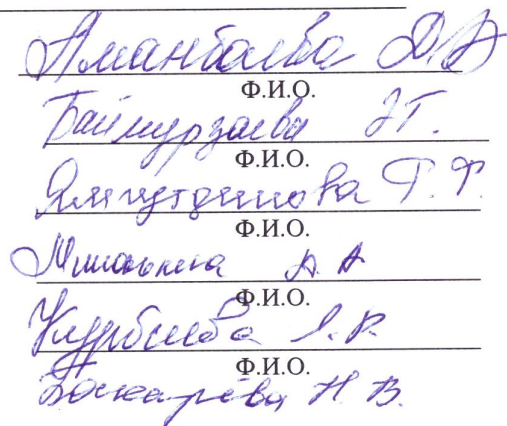 Аманбаева Д.В
Ф.И.О.
Баймурзаева Э.Г.
Ф.И.О.
Ямгутдинова Г. Р.
Ф.И.О.
А. А
Ф.И.О.
Курбиева Я. Р.
Ф.И.О.
Бокарёва Н. В.